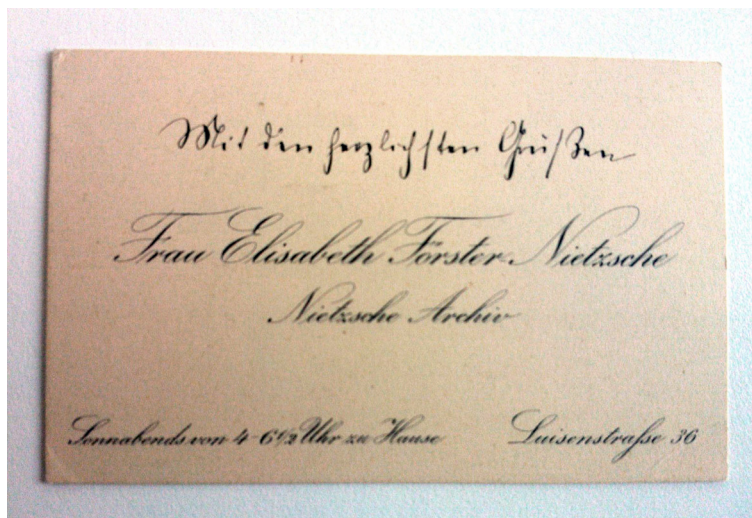 Mit den herzlichsten Grüßen
Frau Elisabeth Förster-Nietzsche
Nietzsche Archiv
Sonnabends von 4-6½ Uhr zu Hause
Luisenstraße 36